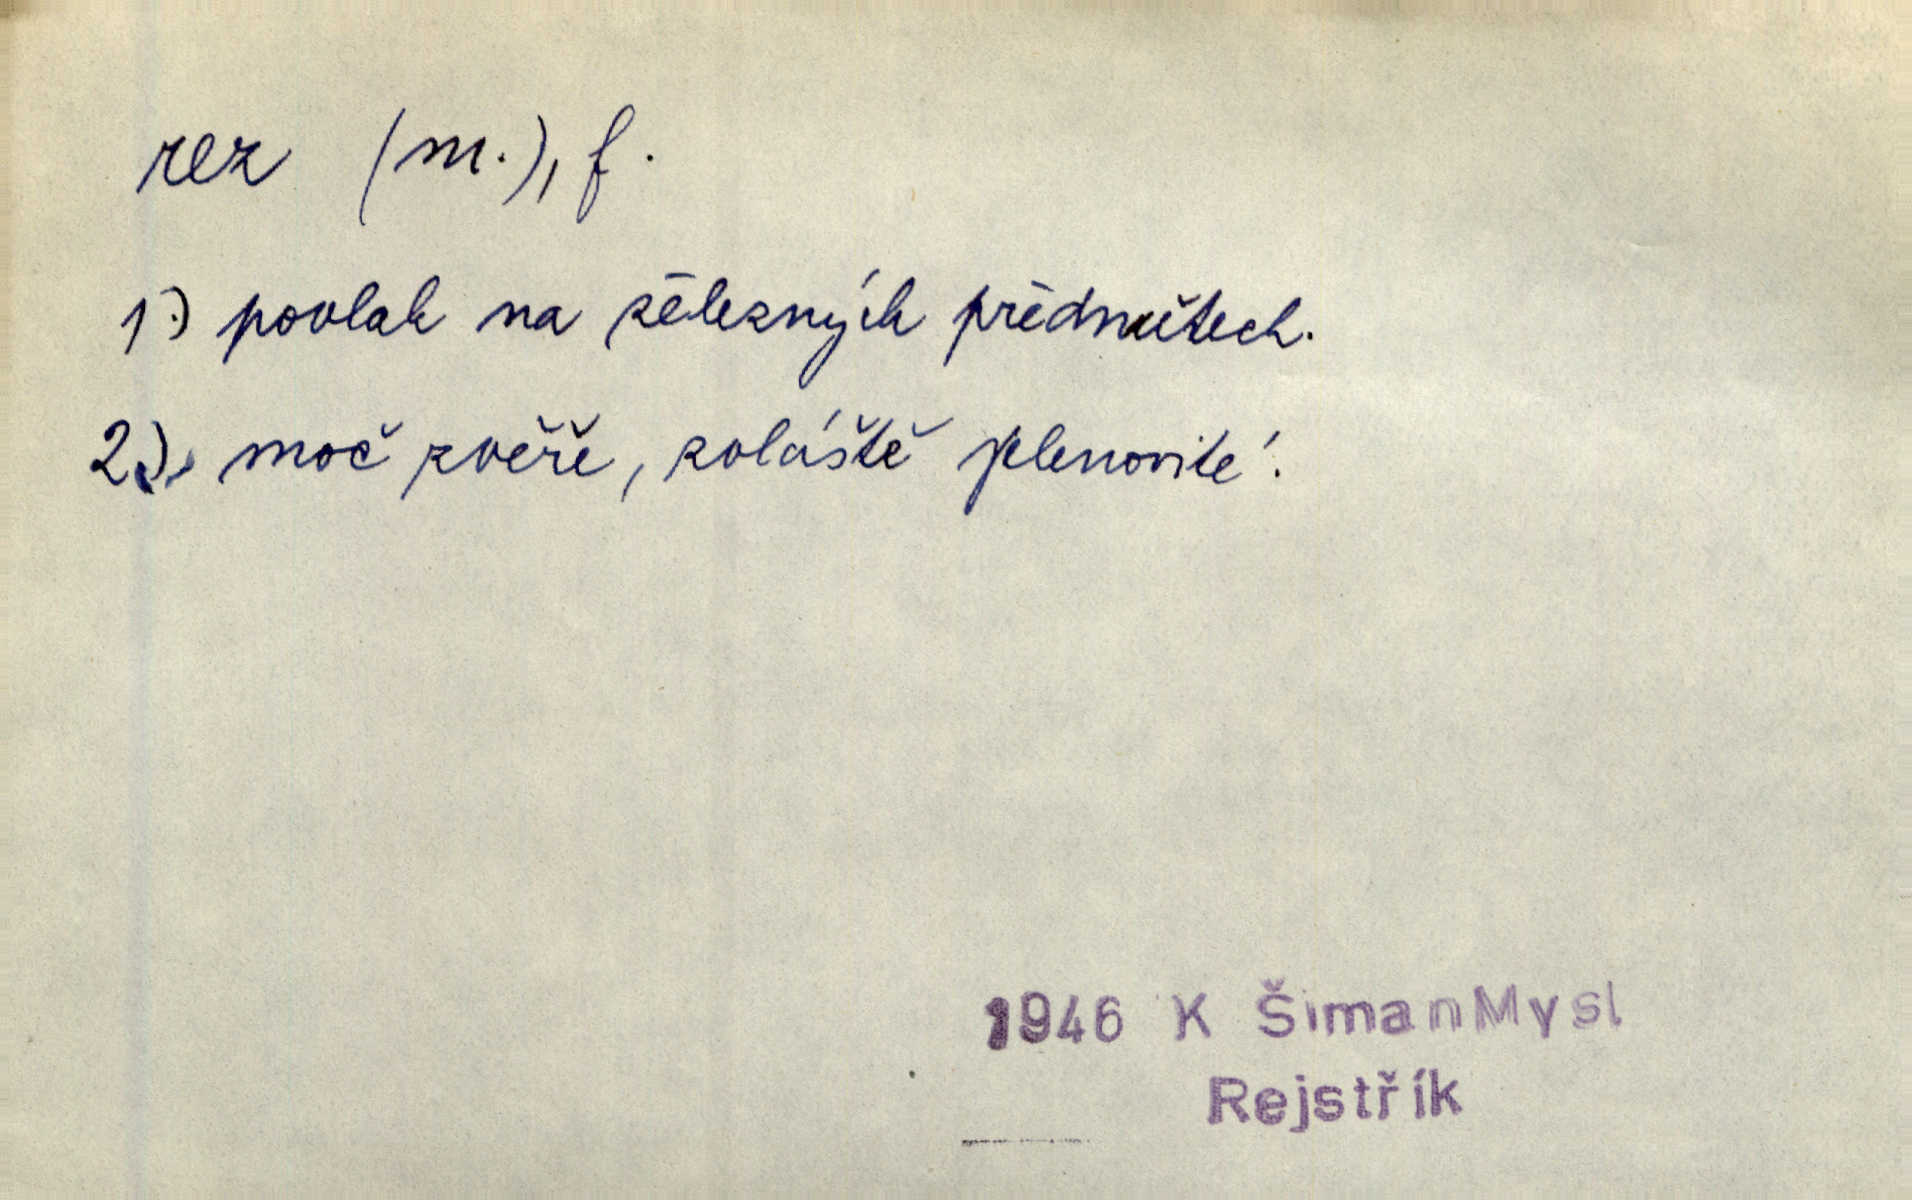 rez (m.), f.
1.) povlak na železných předmětech.
2.), moč zvěře, zvláště jelenovité.
1946 K ŠimanMysl
Rejstřík